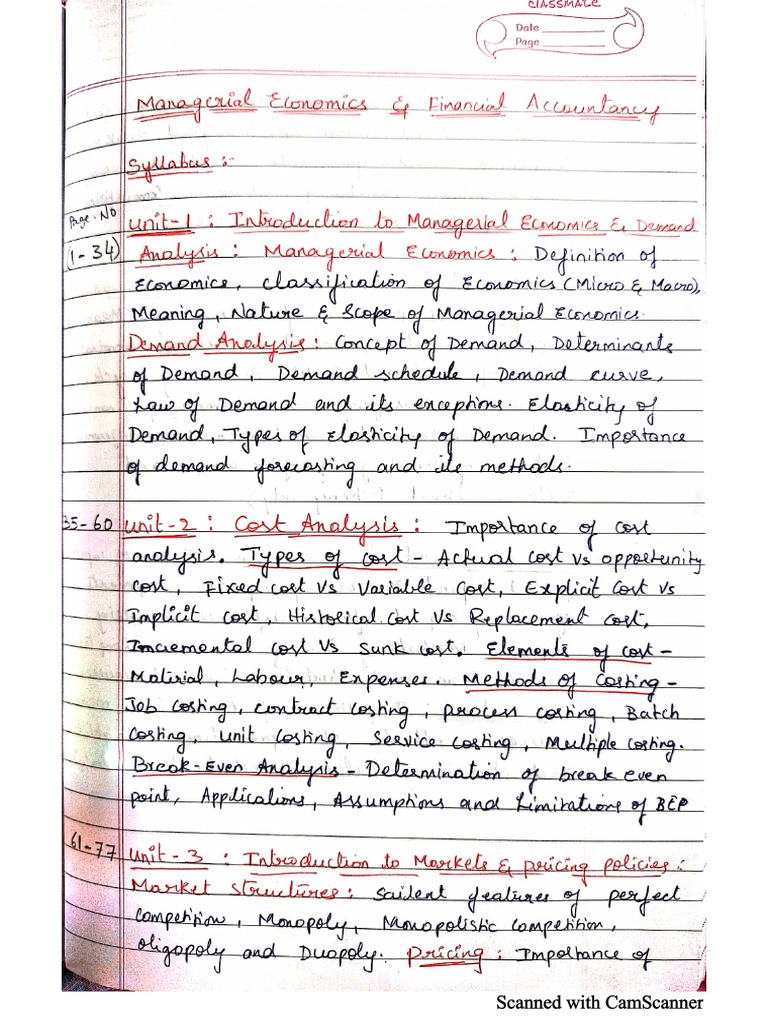 CLASSMATE
Date
Page
Managerial Economics & Financial Accountancy
Syllabus :-
Page. No
Unit-1 : Introduction to Managerial Economics & Demand
(1-34)
Analysis : Managerial Economics : Definition of
Economics, classification of Economics (Micro & Macro),
Meaning, Nature & Scope of Managerial Economics.
Demand Analysis : Concept of Demand, Determinants
of Demand, Demand schedule, Demand curve,
Law of Demand and its exceptions. Elasticity of
Demand, Types of Elasticity of Demand. Importance
of demand forecasting and its methods.
35-60 Unit-2 : Cost Analysis : Importance of cost
analysis. Types of cost - Actual cost vs opportunity
cost, Fixed cost vs Variable cost, Explicit cost vs
Implicit cost, Historical cost vs Replacement cost,
Incremental cost vs Sunk cost. Elements of cost -
Material, Labour, Expenses. Methods of Costing -
Job costing, contract costing, process costing, Batch
costing, unit costing, Service costing, Multiple costing.
Break-Even Analysis - Determination of break even
point, Applications, Assumptions and Limitations of BEP
61-77 Unit-3 : Introduction to Markets & pricing policies :
Market structures : sailent features of perfect
competition, Monopoly, Monopolistic competition,
oligopoly and Duopoly. Pricing : Importance of
Scanned with CamScanner